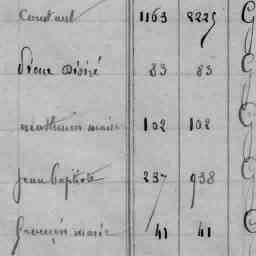 Constant 1163 8225 G
Désiré 83 83 G
marie 102 102 G
Jean Baptiste 237 938 G
François marie 41 41 G